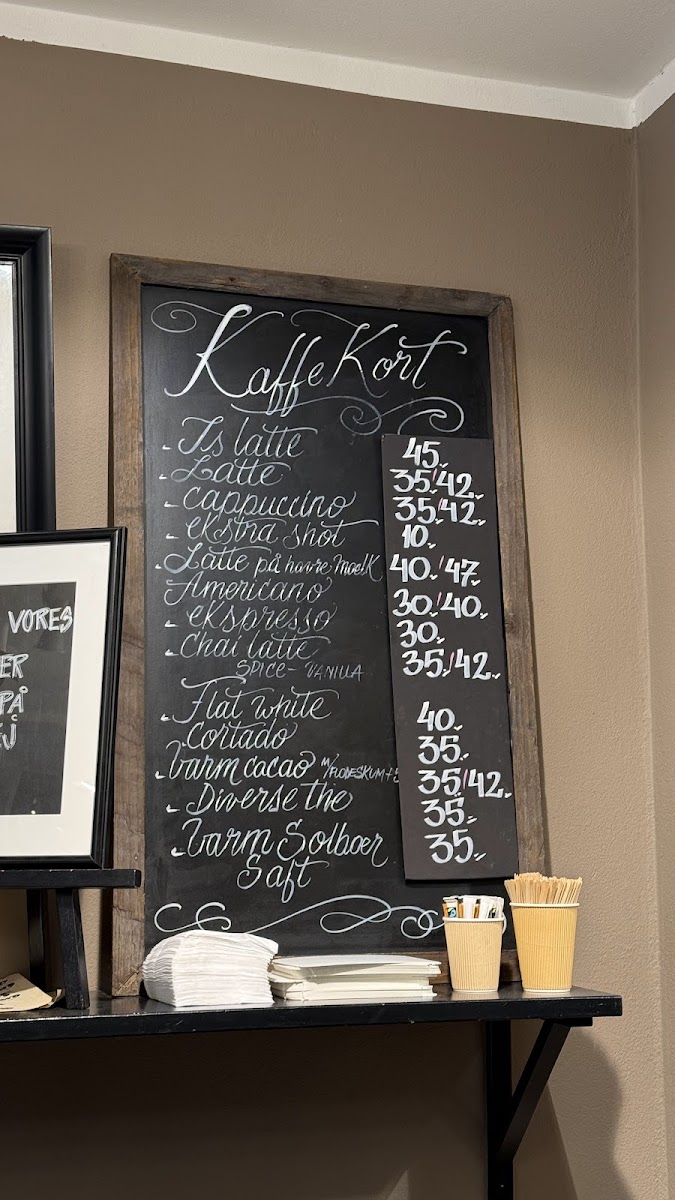 Kaffe Kort
- Is latte 45,-
- Latte 35,-/42,-
- cappuccino 35,-/42,-
- ekstra shot 10,-
- Latte på havre mælk 40,-/47,-
Americano 30,-/40,-
- ekspresso 30,-
- chai latte 35,-/42,-
SPICE - VANILLA
- Flat white 40,-
cortado 35,-
- Varm cacao m/FLØDESKUM +5 35,-/42,-
- Diverse the 35,-
- Varm Solbær 35,-
Saft
VORES
ER
PÅ